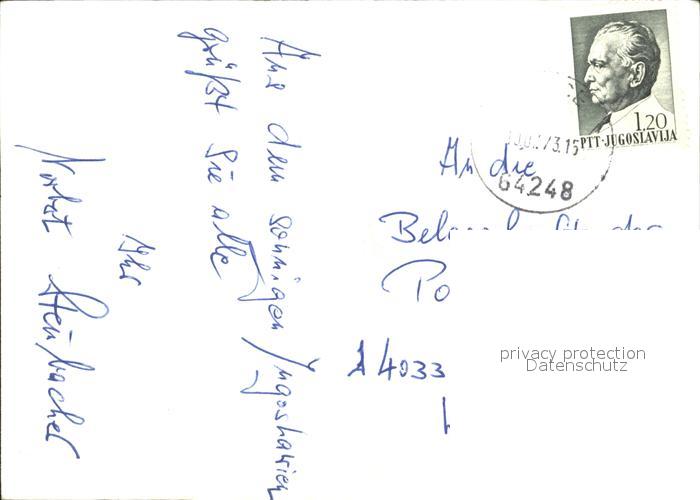 Aus dem sonnigen Jugoslawien
grüßt Sie alle
Ihr
Norbert
1.20
PTT-JUGOSLAVIJA
64248
An die
Po
A 4033
privacy protection
Datenschutz